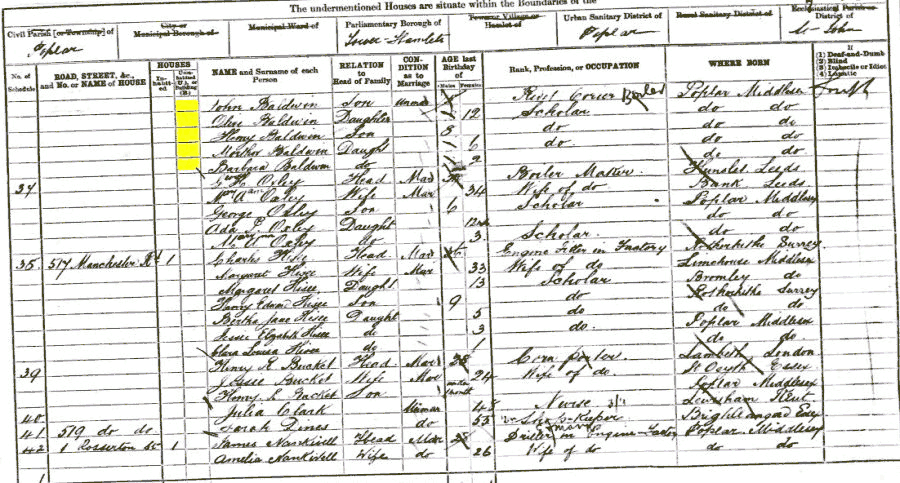 The undermentioned Houses are situate within the Boundaries of the
Civil Parish [or Township] of
Poplar
City or
Municipal Borough of
Municipal Ward of
Parliamentary Borough of
Tower Hamlets
Town or Village or
Hamlet of
Urban Sanitary District of
Poplar
Rural Sanitary District of
Ecclesiastical Parish or
District of
St John
No. of
Schedule
ROAD, STREET, &c.,
and No. or NAME of HOUSE
HOUSES
In-
habit-
ed
NAME and Surname of each
Person
RELATION
to
Head of Family
CON-
DITION
as to
Marriage
AGE last
Birthday
of
Males
Females
Rank, Profession, or OCCUPATION
WHERE BORN
If
(1) Deaf-and-Dumb
(2) Blind
(3) Imbecile or Idiot
(4) Lunatic
John Baldwin Son Unmar Rivet Boiler Poplar Middlesex
Olive Baldwin Daughter 12 Scholar do do
Henry Baldwin Son 8 do do do
Baldwin Daught 6 do do do
Barbara Baldwin do 2 do do
37 Oxley Head Mar Boiler Maker Hunslet Leeds
Oxley Wife Mar 34 Wife of do Bank Leeds
George Oxley Son 6 Scholar Poplar Middlesex
Ada Oxley Daught do do
Mary Ann Oxley do 3 Scholar do do
35 517 Manchester Rd 1 Charles Hisee Head Mar Engine Fitter in Factory Rotherhithe Surrey
Margaret Hisee Wife Mar 33 Wife of do Limehouse Middlesex
Margaret Hisee Daught 13 Scholar Bromley do
Harry Edward Hisee Son 9 do Rotherhithe Surrey
Bertha Jane Hisee Daught 5 do do do
Jessie Elizabeth Hisee do 3 do Poplar Middlesex
Clara Louisa Hisee do 1 do do
39 Henry R Bucket Head Mar 38 Corn Porter Lambeth London
Jessie Bucket Wife Mar 24 Wife of do St Osyth Essex
Henry L Bucket Son under 1 month Poplar Middlesex
40 Julia Clark Unmar 48 Nurse Lewisham Kent
41 519 do do Sarah Lines do 53 Keeper Brightlingsea
42 1 Rosserton St 1 James Nankivell Head Mar 28 Driller in Engine Factory Poplar Middlesex
Amelia Nankivell Wife do 26 Wife of do